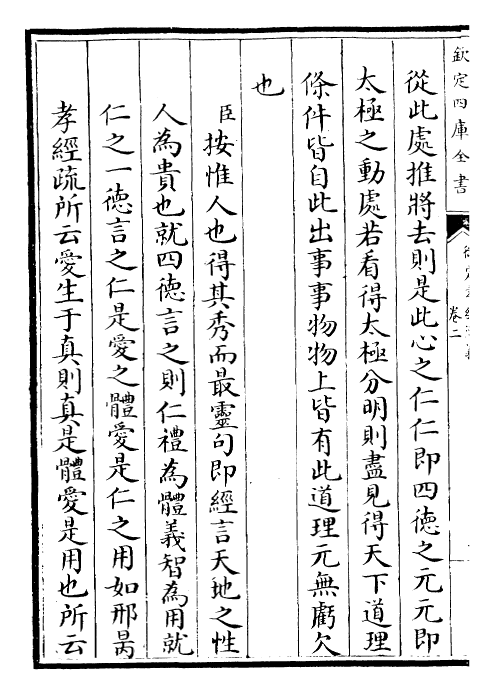 欽定四庫全書
卷二
從此處推將去則是此心之仁仁即四德之元元即
太極之動處若看得太極分明則盡見得天下道理
條件皆自此出事事物物上皆有此道理元無虧欠
也
臣按惟人也得其秀而最靈句即經言天地之性
人為貴也就四德言之則仁禮為體義智為用就
仁之一德言之仁是愛之體愛是仁之用如邢昺
孝經疏所云愛生于真則真是體愛是用也所云